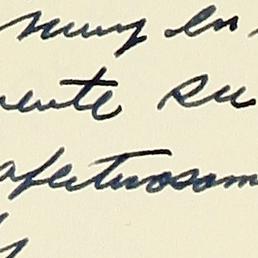 muy en
mente su
afectuosam